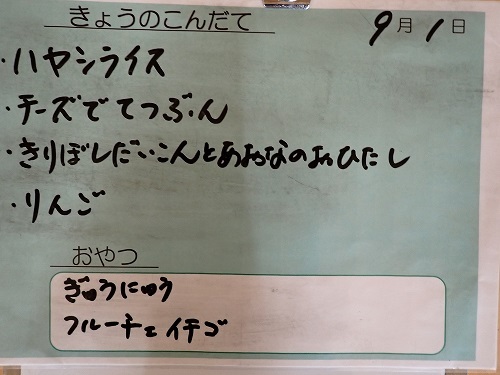 きょうのこんだて 9月1日
・ハヤシライス
・チーズでてつぶん
・きりぼしだいこんとあおなのおひたし
・りんご
おやつ
ぎゅうにゅう
フルーチェイチゴ